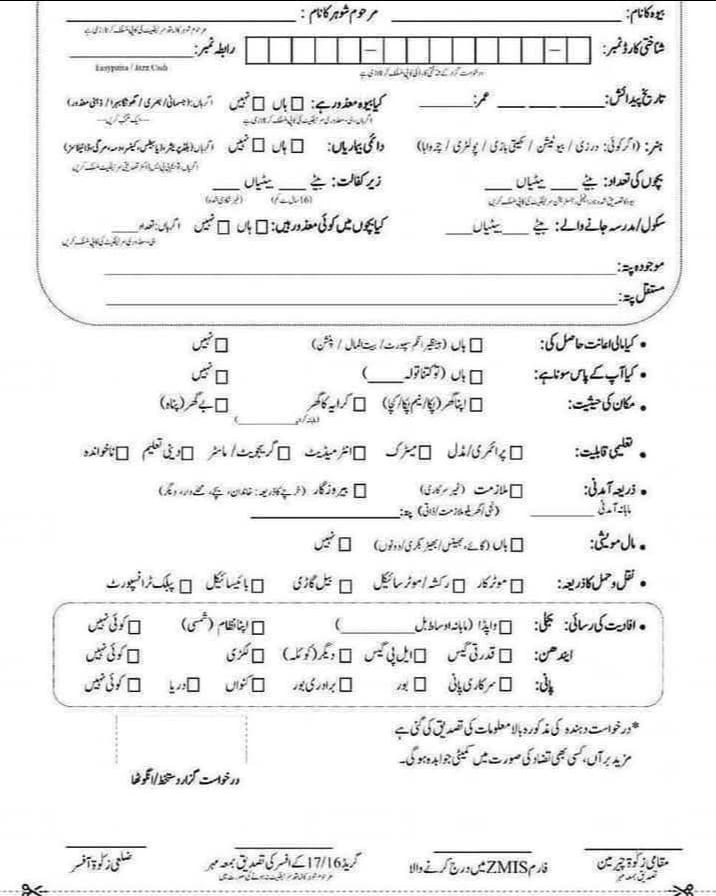 بیوہ کا نام: ____________ مرحوم شوہر کا نام : ____________
مرحوم شوہر کا ڈیتھ سرٹیفکیٹ کی کاپی منسلک کرنا لازمی ہے
شناختی کارڈ نمبر: – – رابطہ نمبر: ____________
درخواست گزار کے شناختی کارڈ کی کاپی منسلک کرنا لازمی ہے Easypaisa / Jazz Cash
تاریخ پیدائش: ____ ____ ____ عمر: ______ کیا بیوہ معذور ہے: ☐ ہاں ☐ نہیں اگر ہاں: (جسمانی / بصری / گونگا بہرا / ذہنی معذور)
ہنر: (اگر کوئی: درزی / بیوٹیشن / کھیتی باڑی / پولٹری / چرواہا) دائمی بیماریاں: ☐ ہاں ☐ نہیں اگر ہاں: (بلڈ پریشر، ذیابیطس، کینسر، دمہ، مرگی، ڈائیلائسز)
بچوں کی تعداد: بیٹے ____ بیٹیاں ____ زیر کفالت: بیٹے ____ بیٹیاں ____
(16 سال سے کم) (غیر شادی شدہ)
سکول/مدرسہ جانے والے: بیٹے ____ بیٹیاں ____ کیا بچوں میں کوئی معذور ہیں: ☐ ہاں ☐ نہیں اگر ہاں: تعداد ____
موجودہ پتہ: ____________
مستقل پتہ: ____________
• کیا مالی اعانت حاصل کی: ☐ ہاں (بینظیر انکم سپورٹ / بیت المال / پنشن) ☐ نہیں
• کیا آپ کے پاس سونا ہے: ☐ ہاں (تو کتنا تولہ ____) ☐ نہیں
• مکان کی حیثیت: ☐ اپنا گھر (پکا/نیم پکا/کچا) ☐ کرایہ کا گھر ☐ بے گھر (پناہ)
(ماہانہ کرایہ ____________)
• تعلیمی قابلیت: ☐ پرائمری/مڈل ☐ میٹرک ☐ انٹرمیڈیٹ ☐ گریجویٹ / ماسٹر ☐ دینی تعلیم ☐ ناخواندہ
• ذریعہ آمدنی: ☐ ملازمت (غیر سرکاری) ☐ بیروزگار (خرچے کا ذریعہ: خاندان، بچے، محلے دار، دیگر)
ماہانہ آمدنی ____________ (نجی/گھریلو ملازمت/ذاتی) پتہ: ____________
• مال مویشی: ☐ ہاں (گائے، بھینس/بھیڑ بکری/دونوں) ☐ نہیں
• نقل و حمل کا ذریعہ: ☐ موٹر کار ☐ رکشہ/موٹر سائیکل ☐ بیل گاڑی ☐ بائیسائیکل ☐ پبلک ٹرانسپورٹ
• افادیت کی رسائی: بجلی: ☐ واپڈا (ماہانہ اوسط بل ____________) ☐ اپنا نظام (شمسی) ☐ کوئی نہیں
ایندھن: ☐ قدرتی گیس ☐ ایل پی گیس ☐ دیگر (کوئلہ) ☐ لکڑی ☐ کوئی نہیں
پانی: ☐ سرکاری پانی ☐ بور ☐ برادری بور ☐ کنواں ☐ دریا ☐ کوئی نہیں
*درخواست دہندہ کی مذکورہ بالا معلومات کی تصدیق کی گئی ہے
مزید برآں، کسی بھی تضاد کی صورت میں کمیٹی جوابدہ ہوگی۔
درخواست گزار دستخط/انگوٹھا
مقامی زکوٰۃ چیرمین فارم ZMIS میں درج کرنے والا گریڈ 17/16 کے افسر کی تصدیق بمعہ مہر ضلعی زکوٰۃ آفسر
تصدیق بمعہ مہر